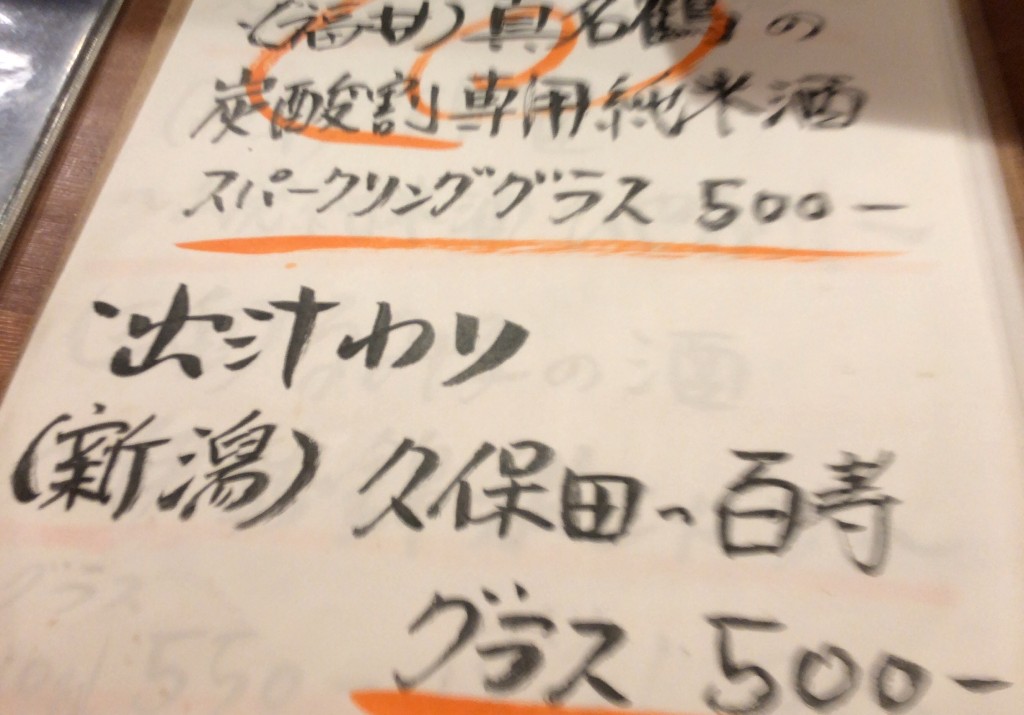 (福井)真名鶴の
炭酸割専用純米酒
スパークリンググラス 500ー
出汁わり
(新潟)久保田、百寿
グラス 500ー